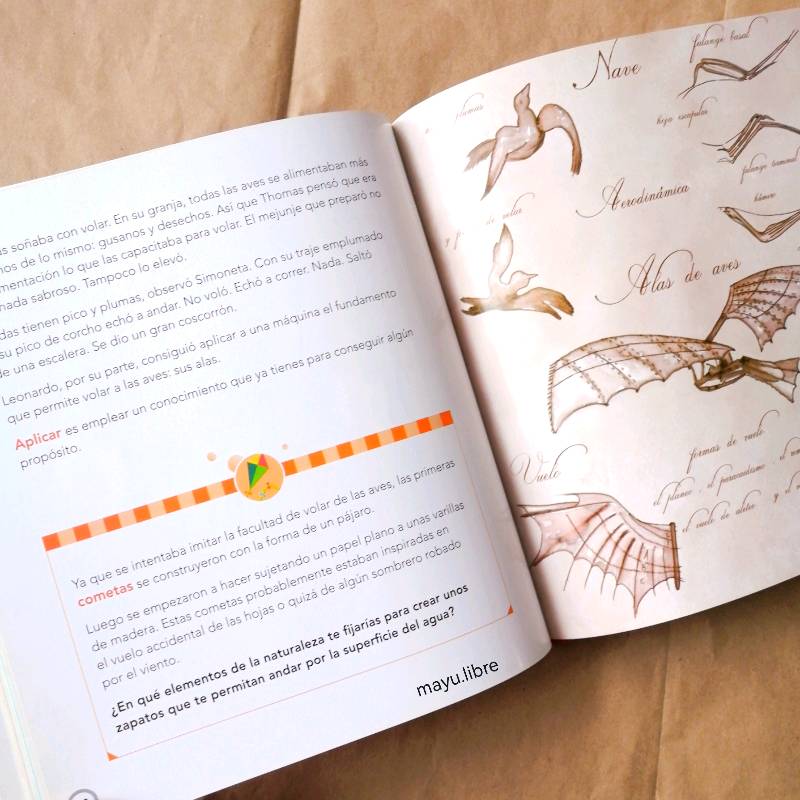 soñaba con volar. En su granja, todas las aves se alimentaban más
de lo mismo: gusanos y desechos. Así que Thomas pensó que era
lo que las capacitaba para volar. El mejunje que preparó no
nada sabroso. Tampoco lo elevó.
tienen pico y plumas, observó Simoneta. Con su traje emplumado
su pico de corcho echó a andar. No voló. Echó a correr. Nada. Saltó
de una escalera. Se dio un gran coscorrón.
Leonardo, por su parte, consiguió aplicar a una máquina el fundamento
que permite volar a las aves: sus alas.
Aplicar es emplear un conocimiento que ya tienes para conseguir algún
propósito.
Ya que se intentaba imitar la facultad de volar de las aves, las primeras
cometas se construyeron con la forma de un pájaro.
Luego se empezaron a hacer sujetando un papel plano a unas varillas
de madera. Estas cometas probablemente estaban inspiradas en
el vuelo accidental de las hojas o quizá de algún sombrero robado
por el viento.
¿En qué elementos de la naturaleza te fijarías para crear unos
zapatos que te permitan andar por la superficie del agua?
mayu.libre
Nave
falange basal
plumas
falange terminal
Aerodinámica
húmero
de volar
Alas de aves
Vuelo
formas de vuelo
el planeo, el
el vuelo de aleteo y el